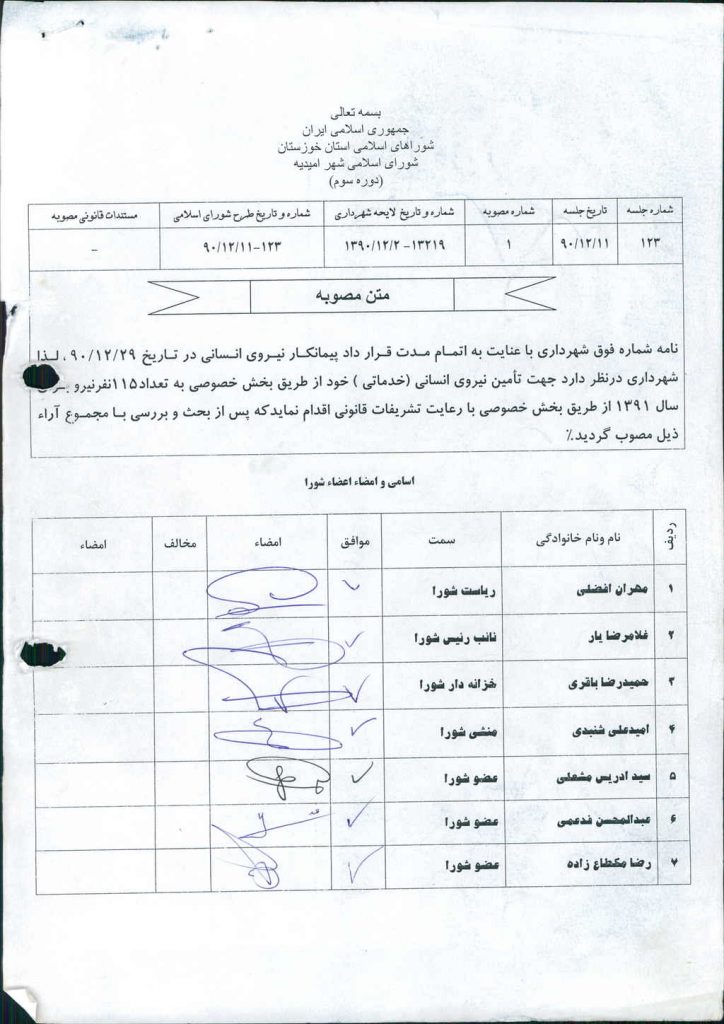 بسمه تعالی
جمهوری اسلامی ایران
شوراهای اسلامی استان خوزستان
شورای اسلامی شهر امیدیه
(دوره سوم)
شماره جلسه تاریخ جلسه شماره مصوبه شماره و تاریخ لایحه شهرداری شماره و تاریخ طرح شورای اسلامی مستندات قانونی مصوبه
۱۲۳ ۹۰/۱۲/۱۱ ۱ ۱۳۲۱۹- ۱۳۹۰/۱۲/۲ ۱۲۳-۹۰/۱۲/۱۱ –
متن مصوبه
نامه شماره فوق شهرداری با عنایت به اتمام مدت قرار داد پیمانکار نیروی انسانی در تاریخ ۹۰/۱۲/۲۹ ، لذا
شهرداری درنظر دارد جهت تأمین نیروی انسانی (خدماتی ) خود از طریق بخش خصوصی به تعداد۱۱۵نفرنیرو
سال ۱۳۹۱ از طریق بخش خصوصی با رعایت تشریفات قانونی اقدام نمایدکه پس از بحث و بررسی با مجموع آراء
ذیل مصوب گردید.٪
اسامی و امضاء اعضاء شورا
ردیف نام ونام خانوادگی سمت موافق امضاء مخالف امضاء
۱ مهران افضلی ریاست شورا
۲ غلامرضا یار نائب رئیس شورا
۳ حمیدرضا باقری خزانه دار شورا
۴ امیدعلی شنبدی منشی شورا
۵ سید ادریس مشعلی عضو شورا
۶ عبدالمحسن فدعمی عضو شورا
۷ رضا مکطاع زاده عضو شورا